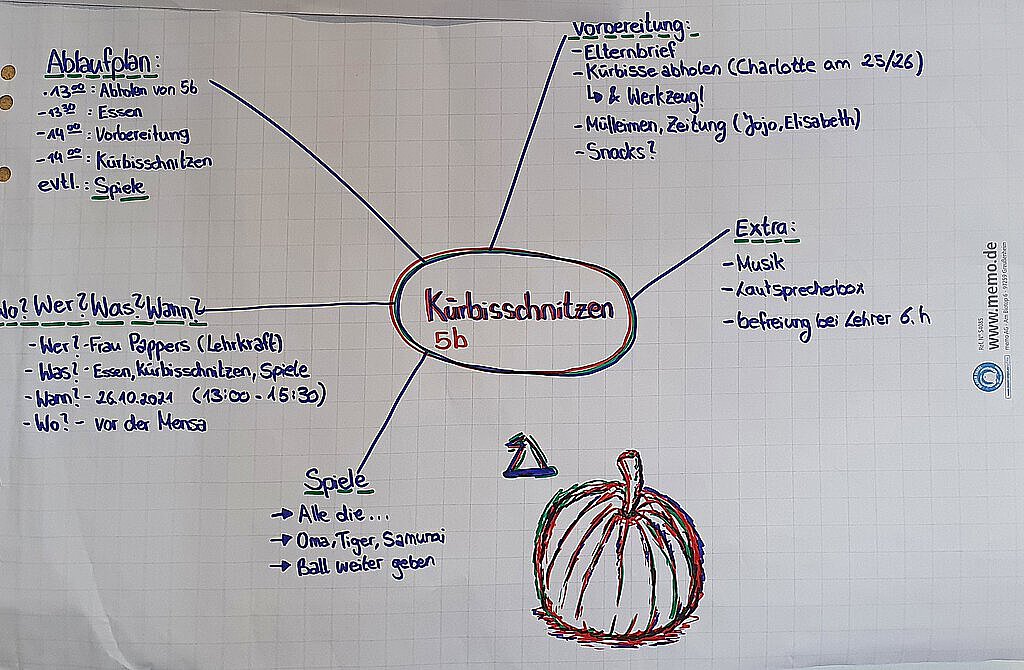 Ablaufplan:
·13⁰⁰: Abholen von 5b
-13³⁰: Essen
-14⁰⁰: Vorbereitung
-14⁰⁰: Kürbisschnitzen
evtl.: Spiele
Vorbereitung:
-Elternbrief
-Kürbisse abholen (Charlotte am 25/26)
↳ & Werkzeug!
-Mülleimer, Zeitung (Jojo, Elisabeth)
-Snacks?
Extra:
-Musik
-Lautsprecherbox
-befreiung bei Lehrer 6.h
Wo? Wer? Was? Wann?
-Wer? -Frau Pappers (Lehrkraft)
-Was? - Essen, Kürbisschnitzen, Spiele
-Wann? - 26.10.2021 (13:00 - 15:30)
-Wo? - vor der Mensa
Kürbisschnitzen
5b
Spiele
→ Alle die...
→ Oma, Tiger, Samurai
→ Ball weiter geben
www.memo.de